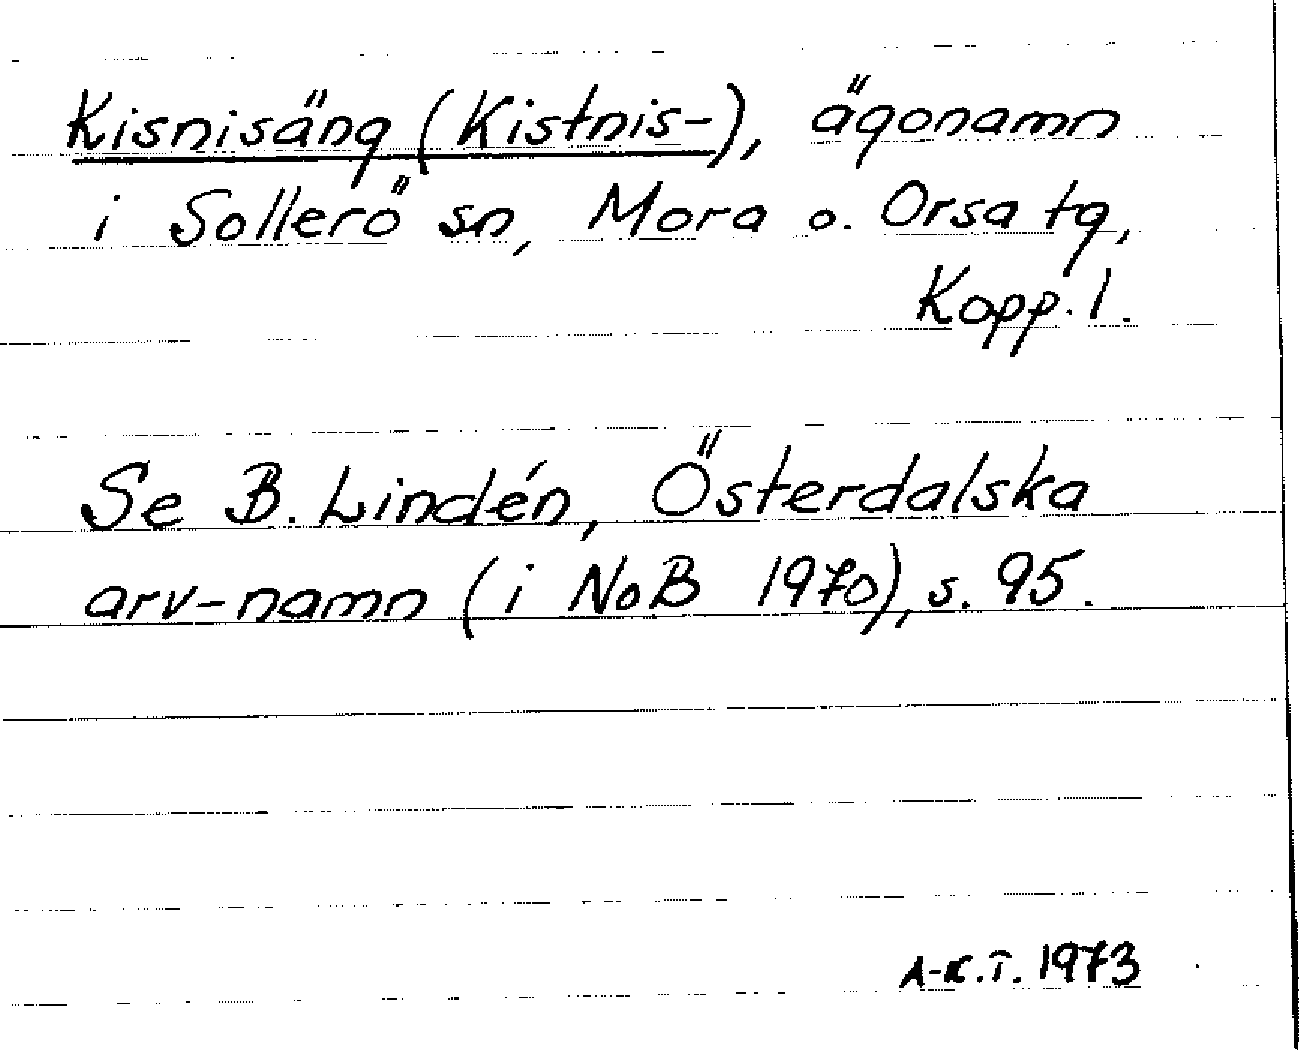 Kisnisäng (Kistnis-), ägonamn
i Sollerö sn, Mora o. Orsa tg,
Kopp. l.
Se B. Lindén, Österdalska
arv-namn (i NoB 1970), s. 95.
A-K.T. 1973